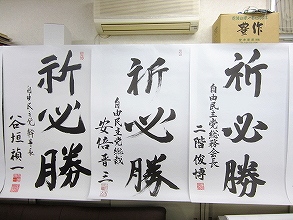 祈必勝
自由民主党総務会長
二階俊博
祈必勝
自由民主党総裁
安倍晋三
祈必勝
自由民主党 幹事長
谷垣禎一